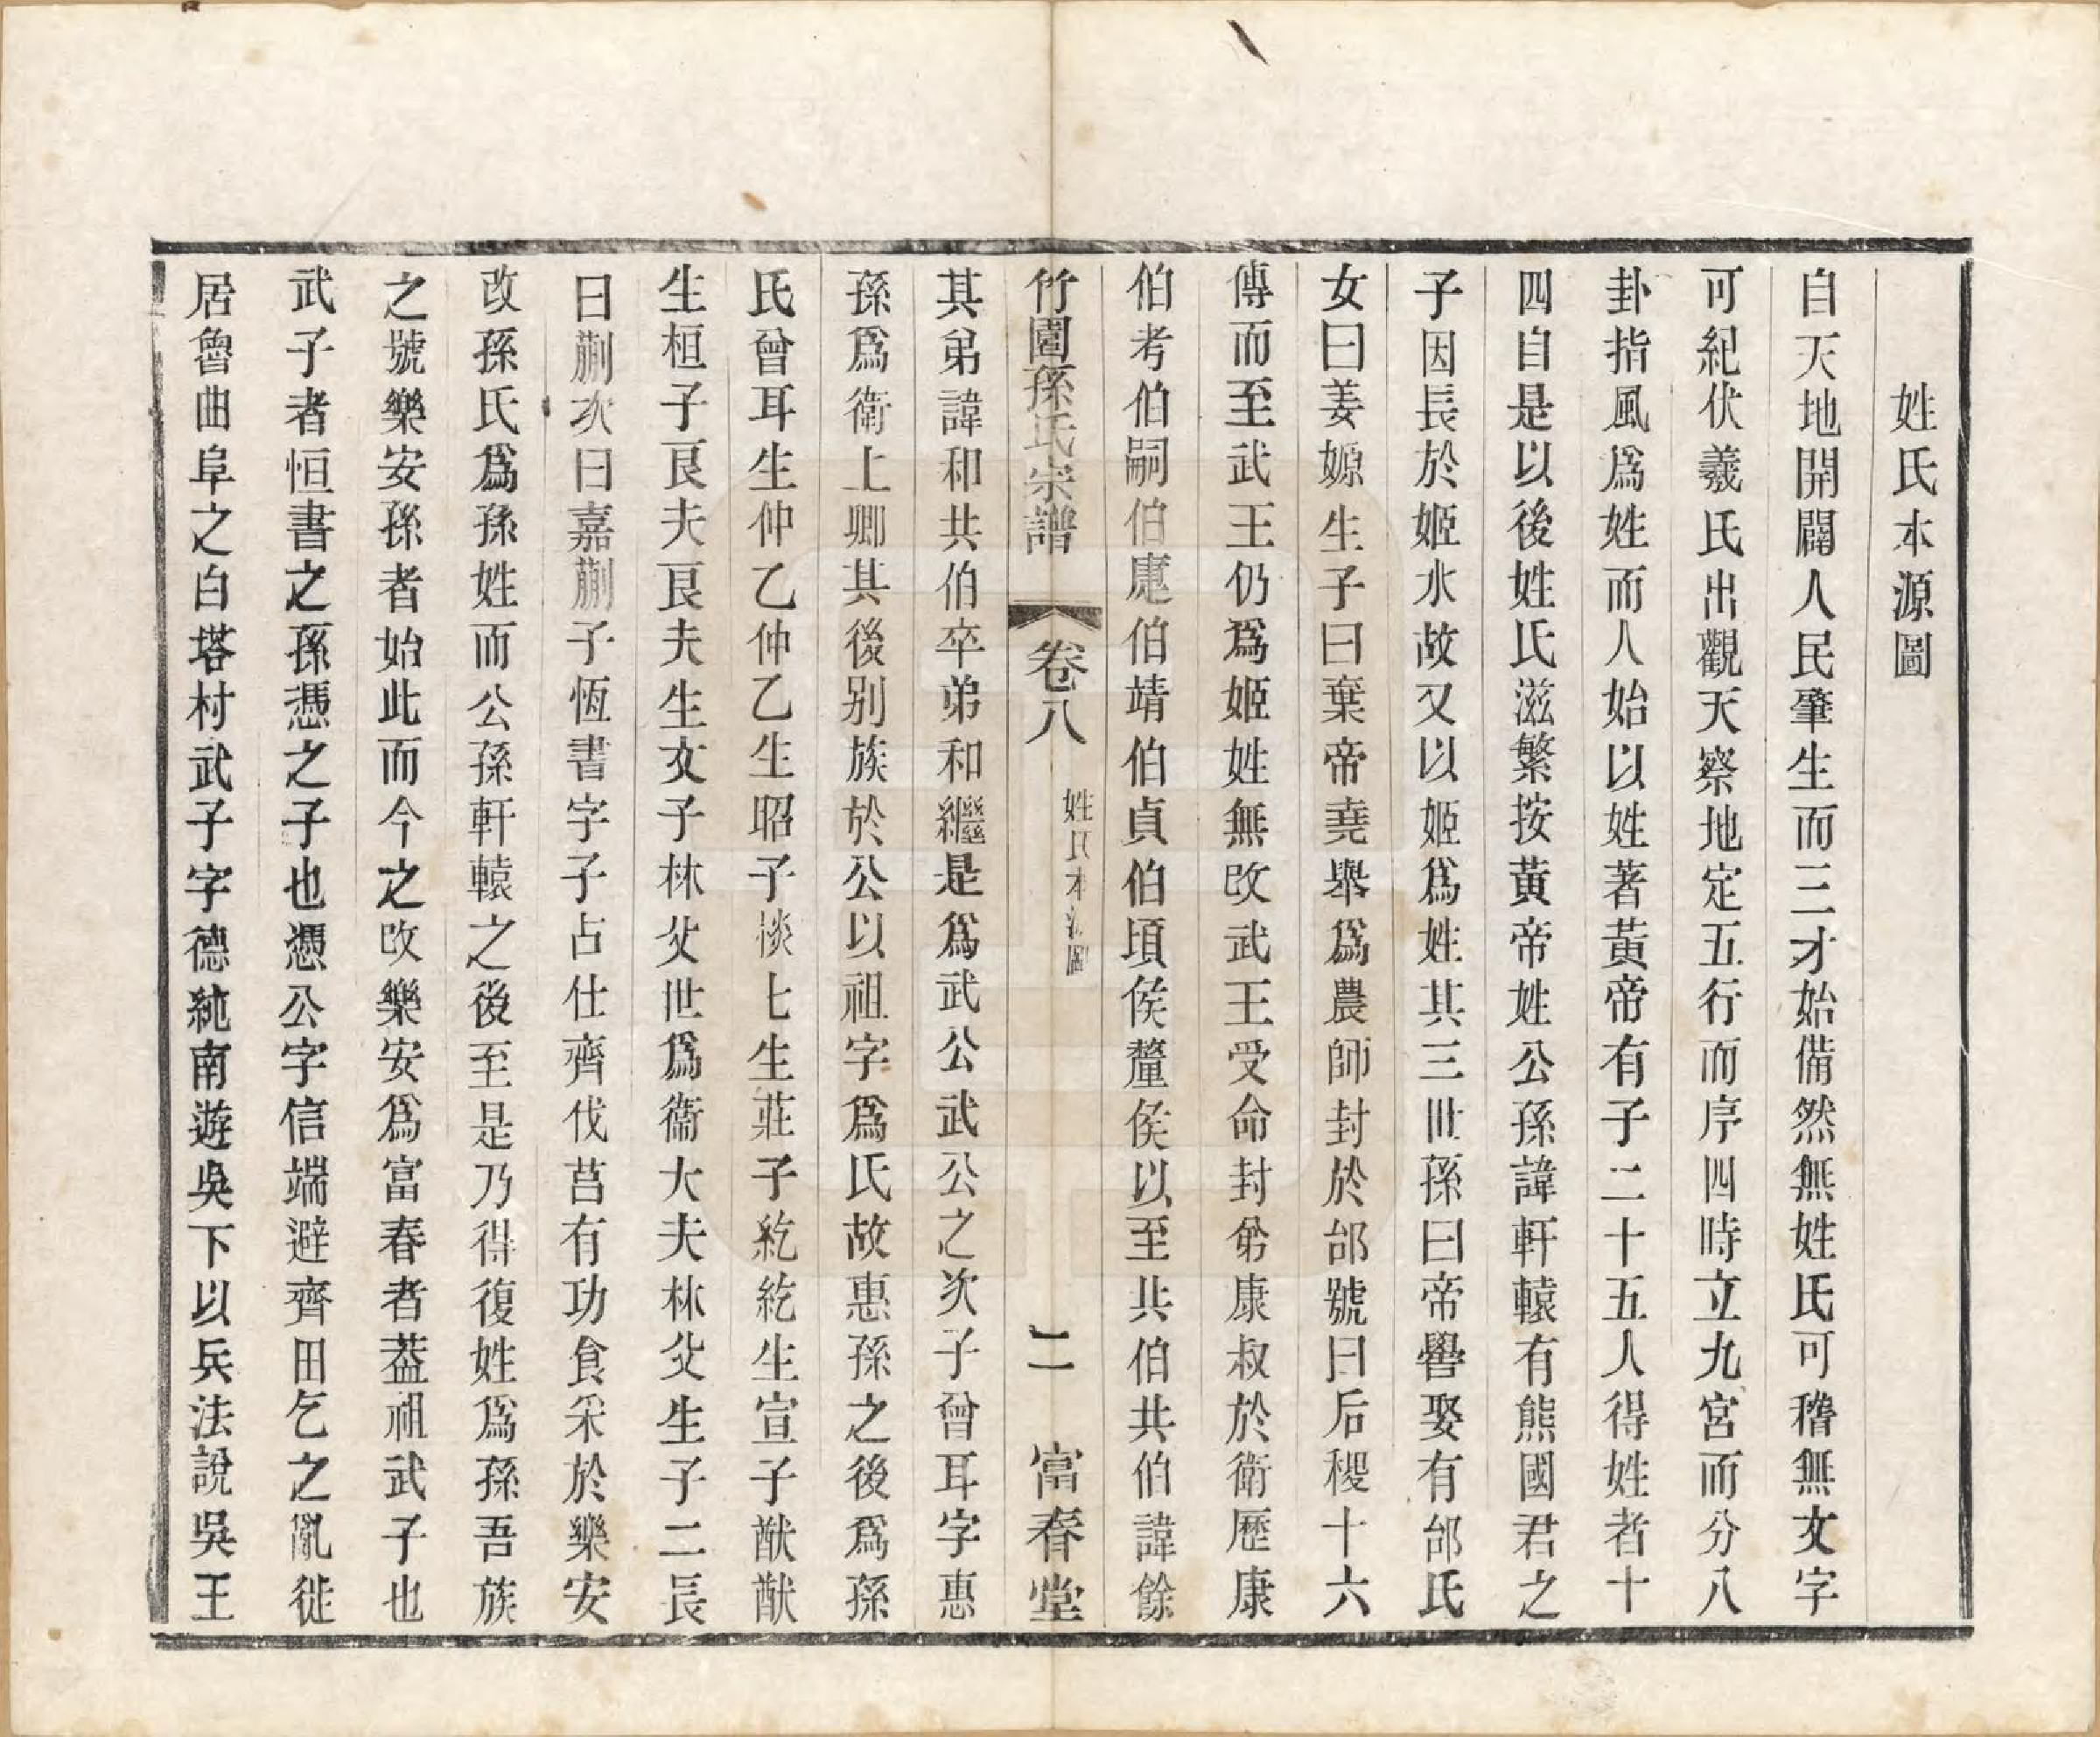 姓氏本源圖
自天地開闢人民肇生而三才始備然無姓氏可稽無文字
可紀伏羲氏出觀天察地定五行而序四時立九宮而分八
卦指風爲姓而人始以姓著黃帝有子二十五人得姓者十
四自是以後姓氏滋繁按黃帝姓公孫諱軒轅有熊國君之
子因長於姬水故又以姬爲姓其三世孫曰帝嚳娶有邰氏
女曰姜嫄生子曰棄帝堯舉爲農師封於邰號曰后稷十六
傳而至武王仍爲姬姓無改武王受命封弟康叔於衛歷康
伯考伯嗣伯庭伯靖伯貞伯頃侯釐侯以至共伯共伯諱餘
竹園孫氏宗譜
卷八
姓氏本源圖
二
富春堂
其弟諱和共伯卒弟和繼是爲武公武公之次子曾耳字惠
孫爲衛上卿其後別族於公以祖字爲氏故惠孫之後爲孫
氏曾耳生仲乙仲乙生昭子惔七生莊子紇紇生宣子猷猷
生桓子良夫良夫生文子林父世爲衞大夫林父生子二長
曰蒯次曰嘉蒯子恆書字子占仕齊伐莒有功食采於樂安
改孫氏爲孫姓而公孫軒轅之後至是乃得復姓爲孫吾族
之號樂安孫者始此而今之改樂安爲富春者葢祖武子也
武子者恒書之孫憑之子也憑公字信端避齊田乞之亂徙
居魯曲阜之白塔村武子字德純南遊吳下以兵法說吳王